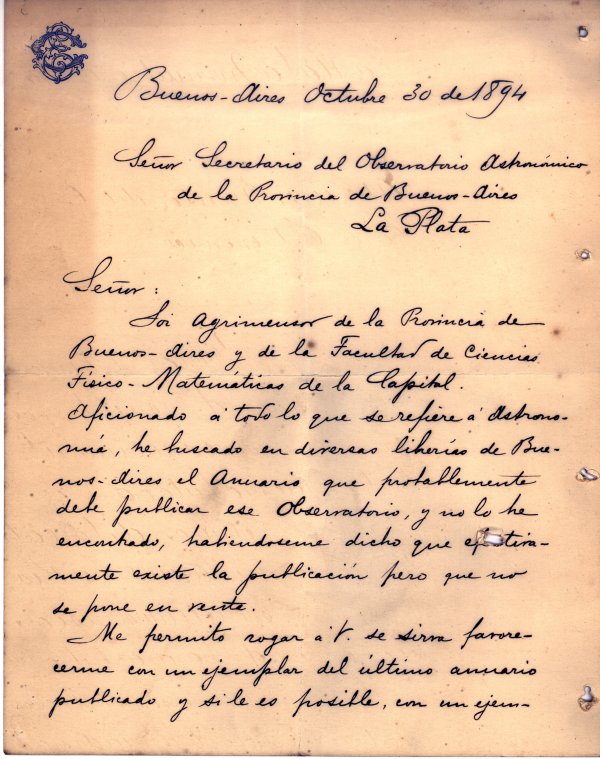 Buenos-Aires Octubre 30 de 1894
Señor Secretario del Observatorio Astronómico
de la Provincia de Buenos-Aires
La Plata
Señor:
Soi Agrimensor de la Provincia de
Buenos-Aires y de la Facultad de Ciencias
Físico-Matematicas de la Capital.
Aficionado á todo lo que se refiere á Astrono-
mía, he buscado en diversas librerías de Bue-
nos-Aires el Anuario que probablemente
debe publicar ese Observatorio, y no lo he
encontrado, habiendoseme dicho que efectiva-
mente existe la publicación pero que no
se pone en venta.
Me permito rogar á V. se sirva favore-
cerme con un ejemplar del último anuario
publicado y si le es posible, con un ejem-